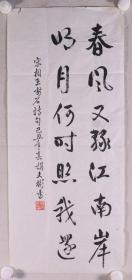 春风又绿江南岸
明月何时照我还
宋相王安石诗句